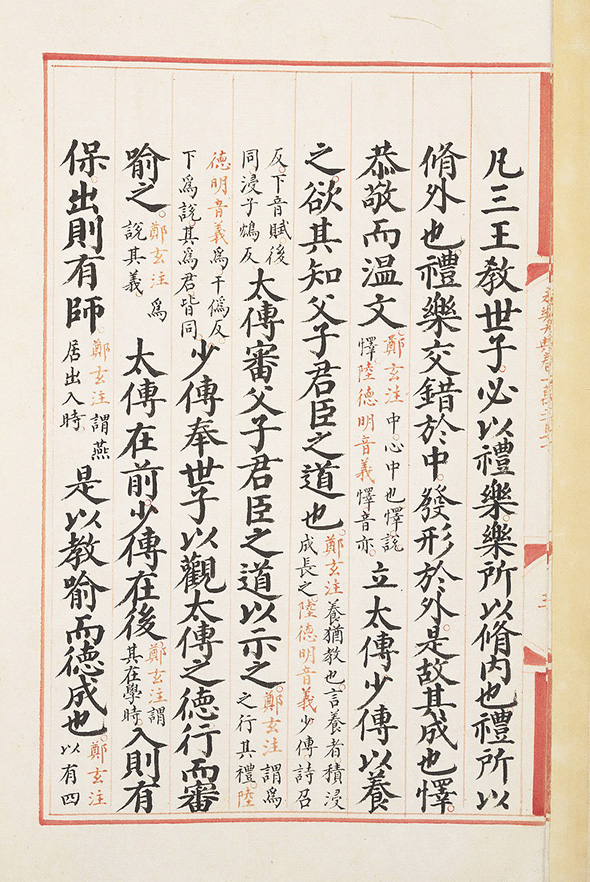 凡三王教世子必以禮樂樂所以脩內也禮所以
脩外也禮樂交錯於中發形於外是故其成也懌
恭敬而温文
鄭玄注中中心中也懌說
懌陸德明音義懌音亦
立太傅少傅以養
之欲其知父子君臣之道也
鄭玄注養猶教也言養者積浸
成長之陸德明音義少傅詩召
反下音賦後
同浸子鴆反
太傅審父子君臣之道以示之
鄭玄注謂爲
之行其禮陸
德明音義爲于僞反
下爲說其爲君皆同
少傅奉世子以觀太傅之德行而審
喻之
鄭玄注爲
說其義
太傅在前少傅在後
鄭玄注謂
其在學時
入則有
保出則有師
鄭玄注謂燕
居出入時
是以教喻而德成也
鄭玄注
以有四